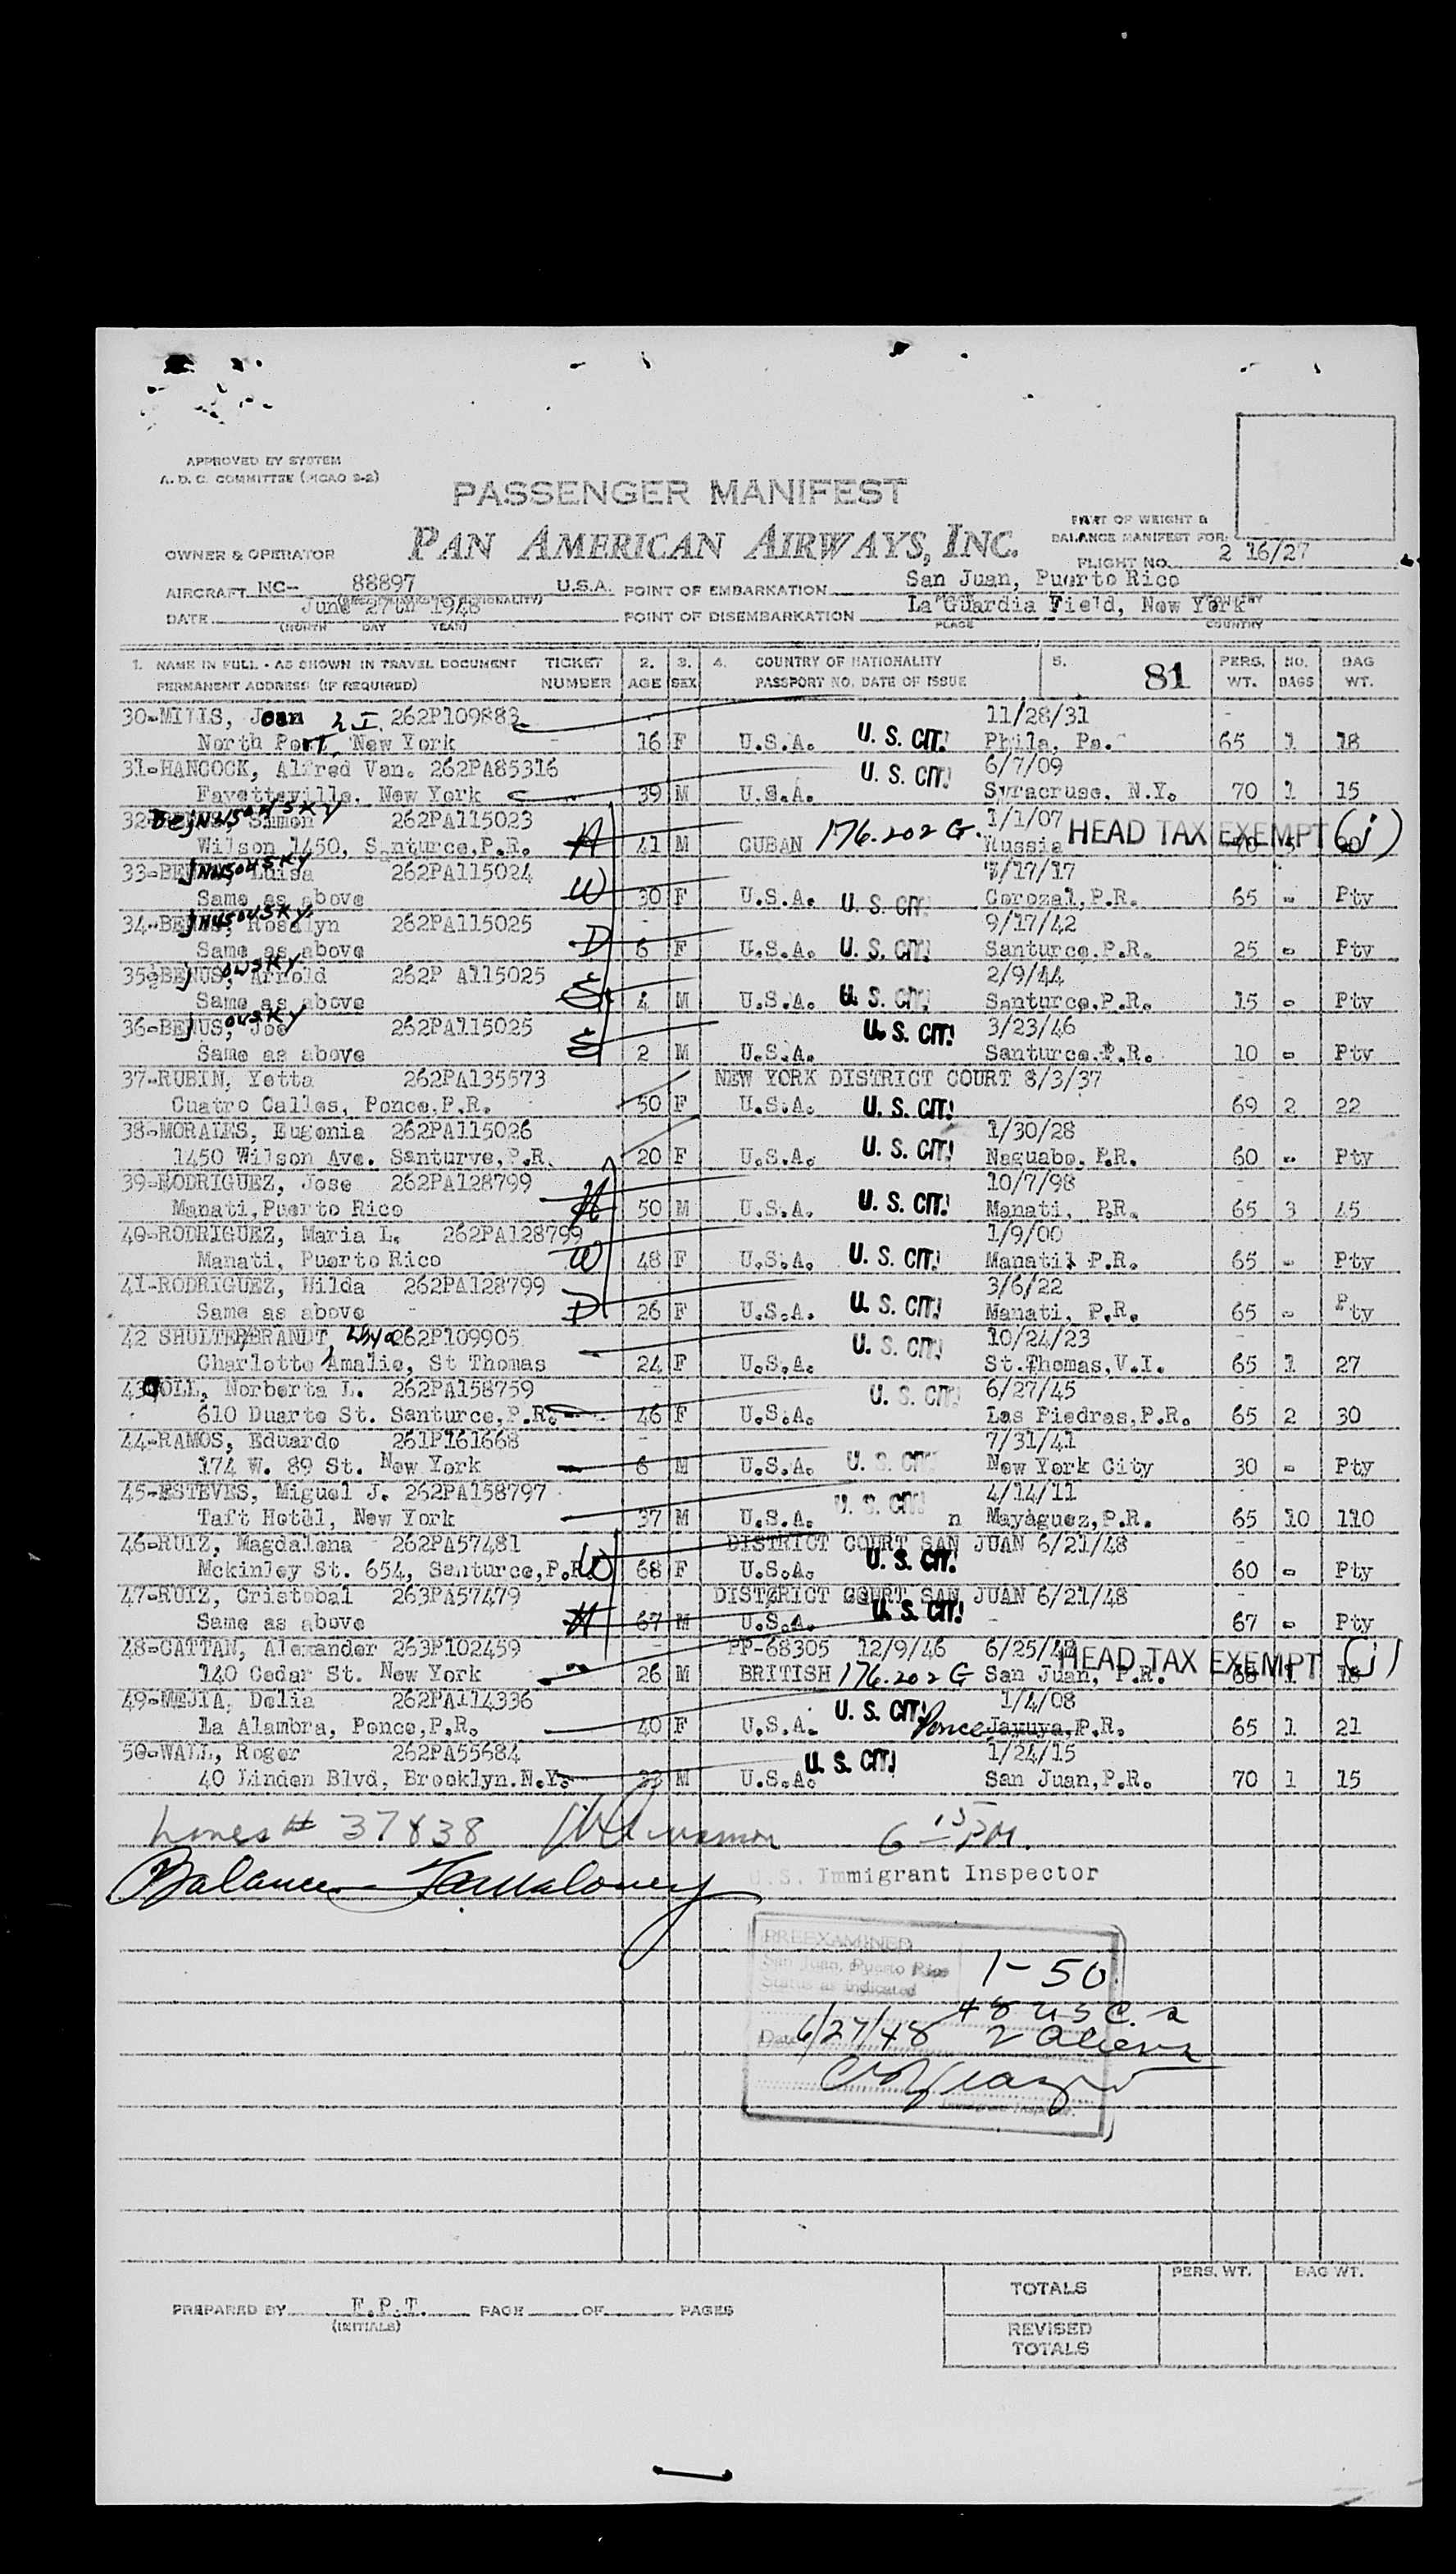 APPROVED BY SYSTEM
A. D. C. COMMITTEE (PICAO 2-2)
PASSENGER MANIFEST
PAN AMERICAN AIRWAYS, INC.
PART OF WEIGHT &
BALANCE MANIFEST FOR:
OWNER & OPERATOR
FLIGHT NO. 2 16/27
AIRCRAFT NC- 88897 U.S.A. POINT OF EMBARKATION San Juan, Puerto Rico
DATE June 27th 1948 POINT OF DISEMBARKATION La Guardia Field, New York
(MONTH DAY YEAR) PLACE COUNTRY
1. NAME IN FULL - AS SHOWN IN TRAVEL DOCUMENT TICKET 2. 3. 4. COUNTRY OF NATIONALITY 5. 81 PERS. NO. BAG
PERMANENT ADDRESS (IF REQUIRED) NUMBER AGE SEX PASSPORT NO. DATE OF ISSUE WT. BAGS WT.
30-MILLS, Joan 262P109883 11/28/31
North Port, New York 16 F U.S.A. U. S. CIT. Phila, Pa. 65 1 18
31-HANCOCK, Alfred Van. 262PA85316 U. S. CIT. 6/7/09
Fayetteville, New York 39 M U.S.A. Syracruse, N.Y. 70 1 15
32- Simon 262PA115023 1/1/07
Wilson 1450, Santurce,P.R. H 41 M CUBAN 176.202 G. Russia HEAD TAX EXEMPT (j)
33- Luisa 262PA115024 /17/17
Same as above W 30 F U.S.A. U. S. CIT. Corozal,P.R. 65 - Pty
34- Rosalyn 262PA115025 9/17/42
Same as above D 6 F U.S.A. U. S. CIT. Santurce,P.R. 25 - Pty
35- Arnold 262P A115025 2/9/44
Same as above S 4 M U.S.A. U. S. CIT. Santurce,P.R. 15 - Pty
36- Joe 262PA115025 U. S. CIT. 3/23/46
Same as above S 2 M U.S.A. Santurce,P.R. 10 - Pty
37-RUBIN, Yetta 262PA135573 NEW YORK DISTRICT COURT 8/3/37
Cuatro Calles, Ponce,P.R. 50 F U.S.A. U. S. CIT. 69 2 22
38-MORALES, Eugenia 262PA115026 1/30/28
1450 Wilson Ave. Santurve,P.R. 20 F U.S.A. U. S. CIT. Naguabo, P.R. 60 - Pty
39-RODRIGUEZ, Jose 262PA128799 10/7/98
Manati,Puerto Rico H 50 M U.S.A. U. S. CIT. Manati, P.R. 65 3 45
40-RODRIGUEZ, Maria L. 262PA128799 1/9/00
Manati, Puerto Rico W 48 F U.S.A. U. S. CIT. Manati, P.R. 65 - Pty
41-RODRIGUEZ, Wilda 262PA128799 3/6/22
Same as above D 26 F U.S.A. U. S. CIT. Manati, P.R. 65 - Pty
42 SHULTERBRANDT, 262P109905 10/24/23
Charlotte Amalie, St Thomas 24 F U.S.A. U. S. CIT. St.Thomas,V.I. 65 1 27
43- OLL, Norberta L. 262PA158759 U. S. CIT. 6/27/45
610 Duarte St. Santurce,P.R. 46 F U.S.A. Las Piedras,P.R. 65 2 30
44-RAMOS, Eduardo 261P161668 7/31/41
174 W. 89 St. New York 6 M U.S.A. U. S. CIT. New York City 30 - Pty
45-ESTEVES, Miguel J. 262PA158797 4/14/11
Taft Hotel, New York 37 M U.S.A. U. S. CIT. n Mayaguez,P.R. 65 10 110
46-RUIZ, Magdalena 262PA57481 DISTRICT COURT SAN JUAN 6/21/48
Mckinley St. 654, Santurce,P.R. W 68 F U.S.A. U. S. CIT. 60 - Pty
47-RUIZ, Cristobal 263PA57479 DISTRICT COURT SAN JUAN 6/21/48
Same as above H 67 M U.S.A. U. S. CIT. 67 - Pty
48-CATTAN, Alexander 263P102459 PP-68305 12/9/46 6/25/
140 Cedar St. New York 26 M BRITISH 176.202 G San Juan, P.R. HEAD TAX EXEMPT (j) 1 18
49-MEJIA, Delia 262PA114336 U. S. CIT. 1/4/08
La Alambra, Ponce,P.R. 40 F U.S.A. Ponce Jayuya,P.R. 65 1 21
50-WALL, Roger 262PA55684 U. S. CIT. 1/24/15
40 Linden Blvd, Brooklyn.N.Y. 33 M U.S.A. San Juan,P.R. 70 1 15
Lines # 37 & 38 6 15 PM.
Balance
U.S. Immigrant Inspector
PREEXAMINED
San Juan, Puerto Rico 1-50
Status as indicated
48 USC.
Date 6/27/48 2 Aliens
Immigrant Inspector.
PREPARED BY F.P.T. PAGE OF PAGES
(INITIALS)
PERS. WT. BAG WT.
TOTALS
REVISED
TOTALS